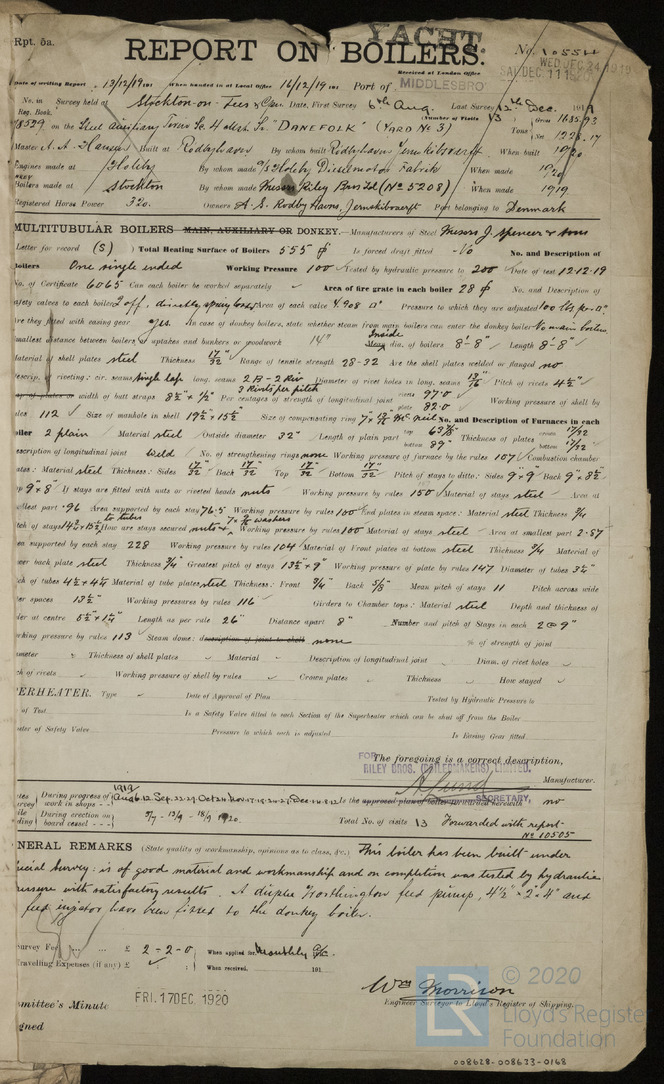 Rpt. 5a.
YACHT.
REPORT ON BOILERS.
No. 10554
Received at London Office
WED. DEC. 24 1919
SAT. DEC. 11 1920
Date of writing Report 13/12/19 191 When handed in at Local Office 16/12/19 191 Port of MIDDLESBRO
No. in Survey held at Stockton-on-Tees Date, First Survey 6th Aug. Last Survey 12th Dec. 1919
Reg. Book.
(Number of Visits 13) Gross 1635.93
on the Steel Auxiliary Twin Sc. 4 Mast Sr "DANEFOLK" (YARD No 3) Tons Net
Master A. A. Hansen Built at Rodbyhaven By whom built Rodbyhaven When built 1920
Engines made at Holeby By whom made A/S Holeby Dieselmotor Fabrik When made 1920
Boilers made at Stockton By whom made Messrs Riley Bros Ltd (No 5208) When made 1919
Registered Horse Power 320. Owners A. S. Rodby Havns Port belonging to Denmark
MULTITUBULAR BOILERS MAIN, AUXILIARY OR DONKEY.—Manufacturers of Steel Messrs J. Spencer & Sons
Letter for record (S) Total Heating Surface of Boilers 555 Is forced draft fitted No No. and Description of
Boilers One single ended Working Pressure 100 Tested by hydraulic pressure to 200 Date of test 12-12-19
No. of Certificate 6065 Can each boiler be worked separately Area of fire grate in each boiler 28 No. and Description of
safety valves to each boiler 2 off, directly spring loaded Area of each valve 4.908 Pressure to which they are adjusted 100 lbs
Are they fitted with easing gear yes. In case of donkey boilers, state whether steam from main boilers can enter the donkey boiler No main boilers
Smallest distance between boilers or uptakes and bunkers or woodwork 14" Inside Mean dia. of boilers 8'-8" Length 8'-8"
Material of shell plates steel Thickness 17/32" Range of tensile strength 28-32 Are the shell plates welded or flanged no
Descrip. of riveting: cir. seams single lap long. seams 2 B - 2 Riv Diameter of rivet holes in long. seams 13/16" Pitch of rivets 4 1/2"
3 Rivets per pitch
width of butt straps 8 1/2" x 1/2" Per centages of strength of longitudinal joint rivets 97.0 plate 82.0 Working pressure of shell by
rules 112 Size of manhole in shell 19 1/2" x 15 1/2" Size of compensating ring No. and Description of Furnaces in each
boiler 2 plain Material steel Outside diameter 32" Length of plain part top 63 bottom 89" Thickness of plates crown 17/32 bottom 17/32
Description of longitudinal joint weld No. of strengthening rings none Working pressure of furnace by the rules 107 Combustion chamber
plates: Material steel Thickness: Sides 17/32" Back 17/32" Top 17/32" Bottom 17/32" Pitch of stays to ditto: Sides 9" x 9" Back 9" x 8 1/2"
Top 9" x 8" If stays are fitted with nuts or riveted heads nuts Working pressure by rules 150 Material of stays steel Area at
smallest part .96 Area supported by each stay 76.5 Working pressure by rules 100 End plates in steam space: Material steel Thickness 3/4
to tubes 7 x 9/16 washers
Pitch of stays 14 1/2 x 15 1/2 How are stays secured nuts & Working pressure by rules 100 Material of stays steel Area at smallest part 2.87
Area supported by each stay 228 Working pressure by rules 104 Material of Front plates at bottom steel Thickness 3/4 Material of
Lower back plate steel Thickness 3/4 Greatest pitch of stays 13 1/2" x 9" Working pressure of plate by rules 147 Diameter of tubes 3 1/4"
Pitch of tubes 4 1/2 x 4 1/4 Material of tube plates steel Thickness: Front 3/4" Back 5/8" Mean pitch of stays 11 Pitch across wide
water spaces 13 1/2" Working pressures by rules 116 Girders to Chamber tops: Material steel Depth and thickness of
girder at centre 5 1/2" x 1 1/4" Length as per rule 26" Distance apart 8" Number and pitch of Stays in each 2 @ 9"
Working pressure by rules 113 Steam dome: description of joint to shell none % of strength of joint
Diameter Thickness of shell plates Material Description of longitudinal joint Diam. of rivet holes
Pitch of rivets Working pressure of shell by rules Crown plates Thickness How stayed
SUPERHEATER. Type Date of Approval of Plan Tested by Hydraulic Pressure to
of Test Is a Safety Valve fitted to each Section of the Superheater which can be shut off from the Boiler
Diameter of Safety Valve Pressure to which each is adjusted Is Easing Gear fitted
The foregoing is a correct description,
FOR RILEY BROS. (BOILERMAKERS) LIMITED.
Manufacturer.
SECRETARY,
1919
During progress of work in shops - - Aug 6.12. Sep. 22.29. Dec 4.8.12 Is the approved plan of boiler forwarded herewith no
During erection on board vessel - - - 1920. Total No. of visits 13 Forwarded with report
No 10505
GENERAL REMARKS (State quality of workmanship, opinions as to class, &c.) This boiler has been built under
special survey: is of good material and workmanship and on completion was tested by hydraulic
pressure with satisfactory results. A duplex Worthington feed pump, 4 1/2" x 2" x 4" and
feed injector have been fitted to the donkey boiler.
Survey Fee ... ... £ 2 - 2 - 0 When applied for, Monthly a/c.
Travelling Expenses (if any) £ When received, 191
Wm Morrison
Engineer Surveyor to Lloyd's Register of Shipping.
Committee's Minute FRI. 17 DEC. 1920
Assigned
© 2020
LR
Lloyd's Register
Foundation
008628-008633-0168